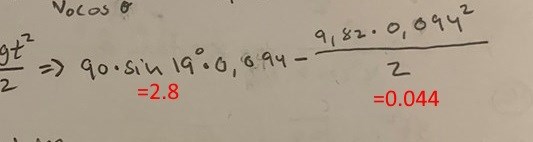 V₀cos θ
gt²/2 => 90·sin 19°·0,094 - 9,82·0,094²/2
=2.8 =0.044